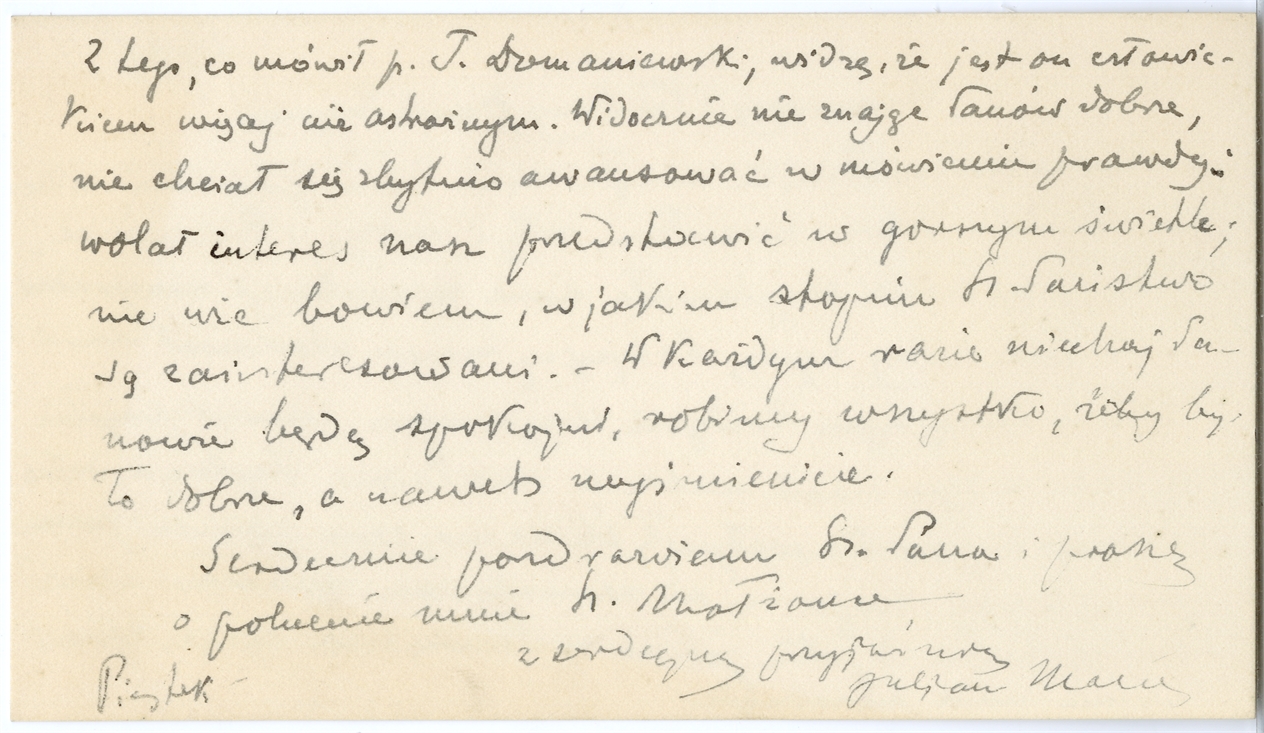 Z tego, co mówił p. J. Domaniewski, widzę, że jest on człowie-
kiem więcej niż ostrożnym. Widocznie nie znając Panów dobrze,
nie chciał się zbytnio awansować w mówieniu prawdy;
wolał interes nasz przedstawić w gorszym świetle;
nie wie bowiem, w jakim stopniu Sz. Państwo
są zainteresowani. – W każdym razie niechaj Pa-
nowie będą spokojni, robimy wszystko, żeby by-
ło dobrze, a nawet najśmieniciej.
Serdecznie pozdrawiam Sz. Pana i proszę
o polecenie mnie Sz. Małżonce
z serdeczną przyjaźnią
Piątek
Julian